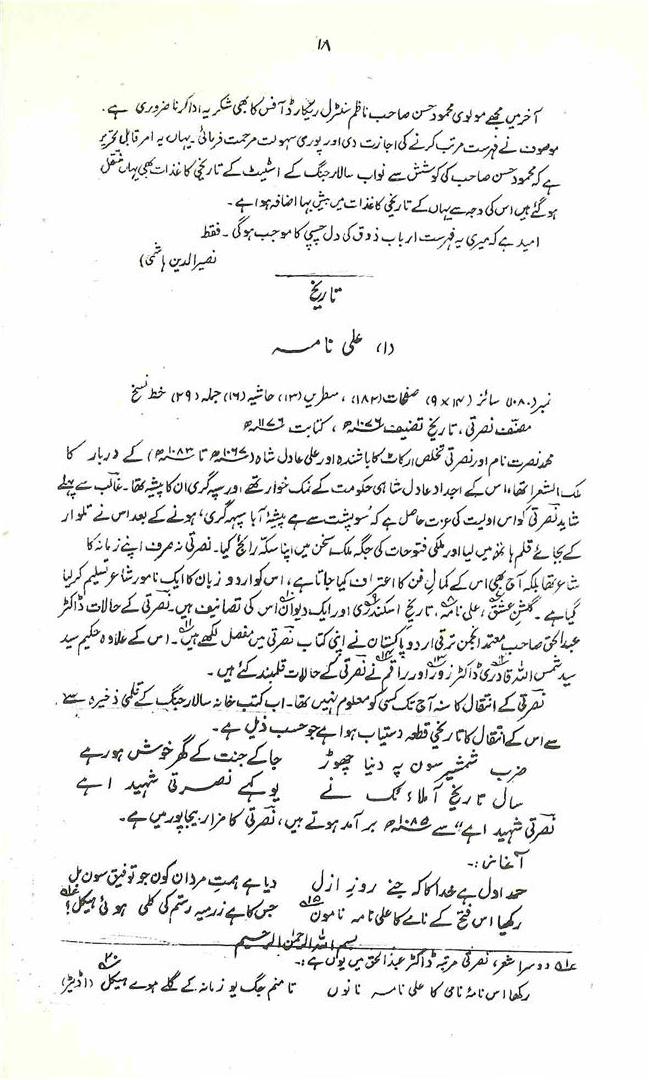 ۱۸
آخر میں مجھے مولوی محمود حسن صاحب ناظم سنٹرل ریکارڈ آفس کا بھی شکریہ ادا کرنا ضروری ہے۔
موصوف نے فہرست مرتب کرنے کی اجازت دی اور پوری سہولت مرحمت فرمائی۔ یہاں یہ امر قابل تحریر
ہے کہ محمود حسن صاحب کی کوشش سے نواب سالار جنگ کے اسٹیٹ کے تاریخی کاغذات بھی یہاں منتقل
ہوگئے ہیں اس کی وجہ سے یہاں کے تاریخی کاغذات میں بیش بہا اضافہ ہوا ہے۔
امید ہے کہ میری یہ فہرست ارباب ذوق کی دل چسپی کا موجب ہوگی۔ فقط
نصیر الدین ہاشمی)
تاریخ
(۱) علی نامہ
نمبر (۱۰۸۰) سائز (۱۴ × ۹) صفحات (۱۸۲)، سطریں (۱۳) حاشیہ (۱۶) جملہ (۲۹) خط نسخ
مصنف نصرتی، تاریخ تصنیف ۱۰۷۶ھ، کتابت ۱۱۷۶ھ
محمد نصرت نام اور نصرتی تخلص ارکاٹ کا باشندہ اور علی عادل شاہ (۱۰۶۷ھ تا ۱۰۸۳ھ) کے دربار کا
ملک الشعرا تھا، اس کے اجداد عادل شاہی حکومت کے نمک خوار تھے اور سپہ گری ان کا پیشہ تھا۔ غالب سے پہلے
شاید نصرتی کو اس اولیت کی عزت حاصل ہے کہ "سو پشت سے ہے پیشۂ آبا سپہ گری" ہونے کے بعد اس نے تلوار
کے بجائے قلم ہاتھ میں لیا اور ملکی فتوحات کی جگہ ملک سخن میں اپنا سکہ رائج کیا۔ نصرتی نہ صرف اپنے زمانہ کا
شاعر تھا بلکہ آج بھی اس کے کمال فن کا اعتراف کیا جاتا ہے، اس کو اردو زبان کا ایک نامور شاعر تسلیم کر لیا
گیا ہے۔ گلشن عشق، علی نامہ، تاریخ اسکندری اور ایک دیوان اس کی تصانیف ہیں۔ نصرتی کے حالات ڈاکٹر
عبدالحق صاحب معتمد انجمن ترقی اردو پاکستان نے اپنی کتاب نصرتی میں مفصل لکھے ہیں۔ اس کے علاوہ حکیم سید
سید شمس اللہ قادری ڈاکٹر زور اور راقم نے نصرتی کے حالات قلمبند کئے ہیں۔
نصرتی کے انتقال کا سنہ آج تک کسی کو معلوم نہیں تھا۔ اب کتب خانہ سالار جنگ کے قلمی ذخیرہ سے
سے اس کے انتقال کا تاریخی قطعہ دستیاب ہوا ہے جو حسب ذیل ہے۔
ضرب شمشیر سوں یہ دنیا چھوڑ جا کے جنت کے گھر خوش ہو رہے
سال تاریخ آ ملائک نے یو کہے نصرتی شہید اہے
"نصرتی شہید اہے" سے ۱۰۸۵ھ برآمد ہوتے ہیں، نصرتی کا مزار بیجاپور میں ہے۔
آغاز:۔
حمد اول ہے خدا کا کہ جنے روز ازل دیا ہے ہمت مرداں کوں جو توفیق سوں بل
رکھیا اس فتح کے نامے کا علی نامہ نامون ۱۵؎ جس کا ہے زرمیہ رستم کی گلی ہوئی ہیکل؟
بسم اللہ الرحمٰن الرحیم
۱۵؎ دوسرا شعر، نصرتی مرتبہ ڈاکٹر عبدالحق میں یوں ہے:۔
رکھا اس نامۂ نامی کا علی نامہ نانوں تا منم جگ یو زمانہ کے گلے ہوے ہیکل (اڈیٹر)